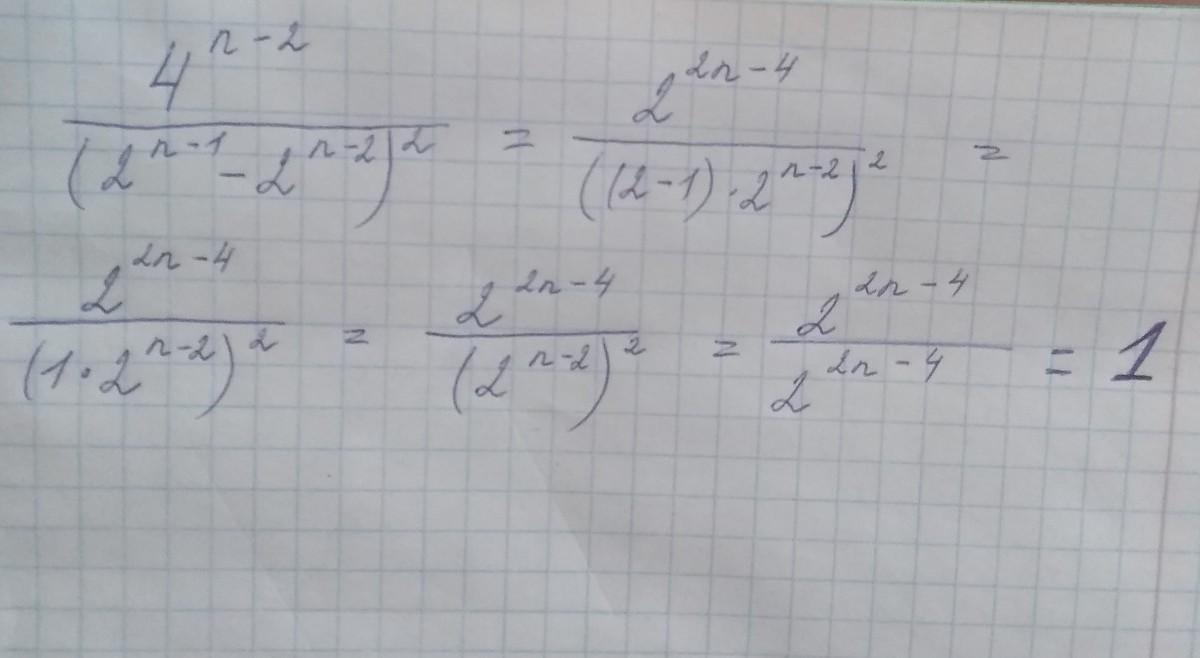 4^(n-2) / (2^(n-1) - 2^(n-2))^2 = 2^(2n-4) / ((2-1)·2^(n-2))^2 =
2^(2n-4) / (1·2^(n-2))^2 = 2^(2n-4) / (2^(n-2))^2 = 2^(2n-4) / 2^(2n-4) = 1